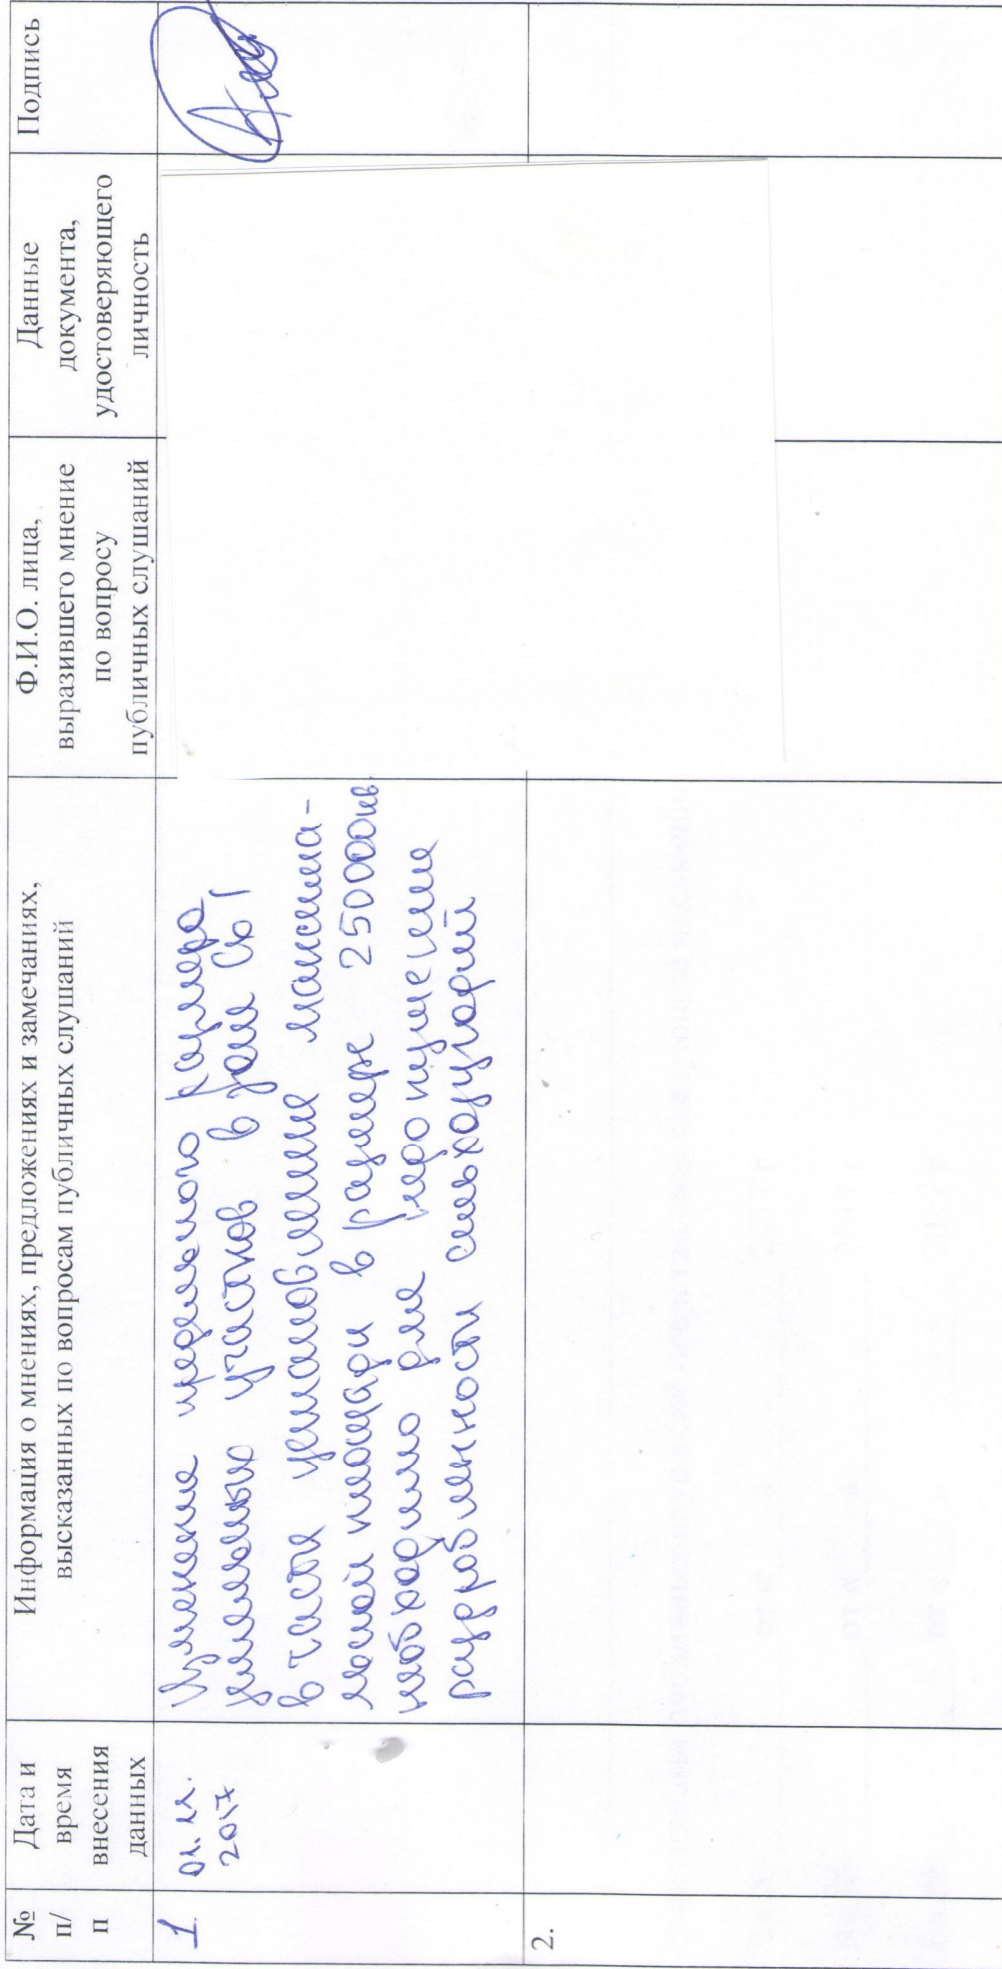 №
п/
п
Дата и
время
внесения
данных
Информация о мнениях, предложениях и замечаниях,
высказанных по вопросам публичных слушаний
Ф.И.О. лица,
выразившего мнение
по вопросу
публичных слушаний
Данные
документа,
удостоверяющего
личность
Подпись
1.
01.11.
2017
Изменение предельного размера
земельных участков в зоне Сх 1
в части установления максима-
льной площади в размере 250000кв
необходимо для недопущения
раздробленности сельхозугодий
2.